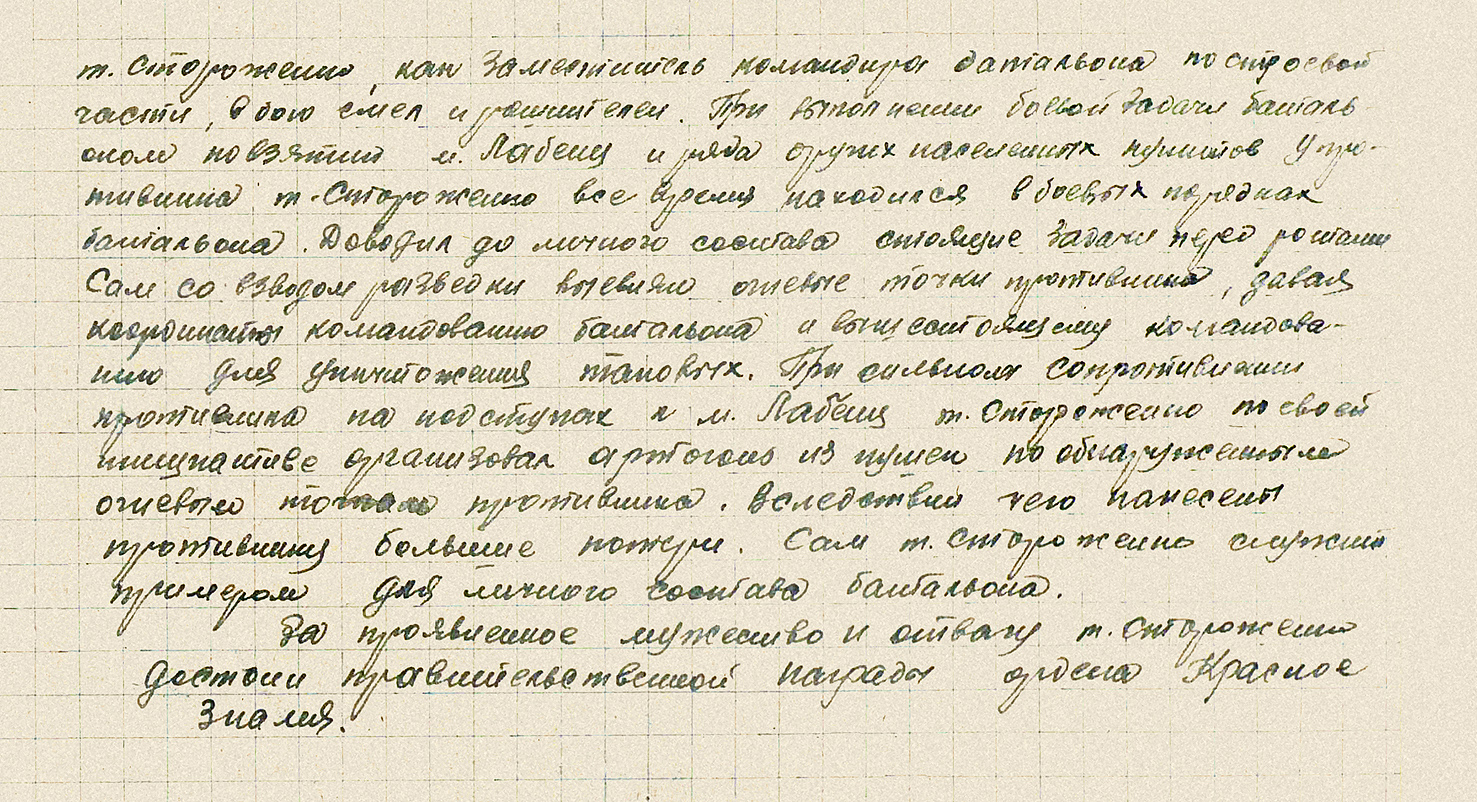 т. Стороженко, как заместитель командира батальона по строевой
части, в бою смел и решителен. При выполнении боевой задачи баталь-
оном по взятии м. Лабенц и ряда других населенных пунктов у про-
тивника т. Стороженко все время находился в боевых порядках
батальона. Доводил до личного состава стоящие задачи перед ротами
Сам со взводом разведки выевлял огневые точки противника, давая
координаты командованию батальона и вышестоящему командова-
нию для уничтожения таковых. При сильном сопротивлении
противника на подступах к м. Лабенц т. Стороженко по своей
инициативе организовал артогонь из пушек по обнаруженным
огневым точкам противника. Вследствии чего нанесены
противнику большие потери. Сам т. Стороженко служит
примером для личного состава батальона.
За проявленное мужество и отвагу т. Стороженко
достоин правительственной награды ордена Красное
Знамя.